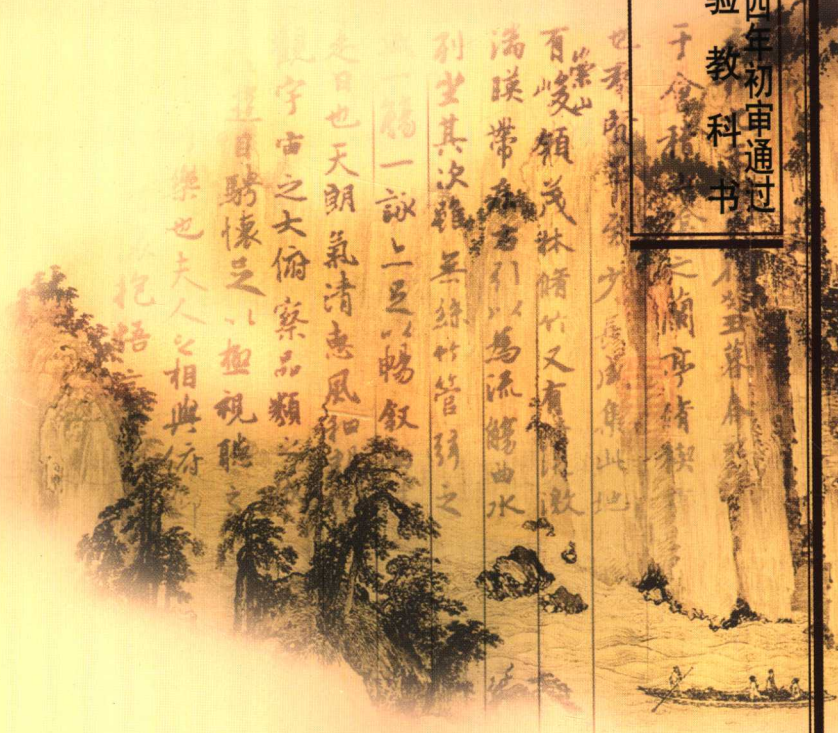 四年初审通过
验教科书
癸丑暮春
于會稽山陰之蘭亭脩稧
也羣賢畢至少長咸集此地
有崇山峻領茂林脩竹又有清流激
湍暎帶左右引以為流觴曲水
列坐其次雖無絲竹管弦之
盛一觴一詠亦足以暢敘
是日也天朗氣清惠風和暢
觀宇宙之大俯察品類之
遊目騁懷足以極視聽之
樂也夫人之相與俯仰
抱悟言